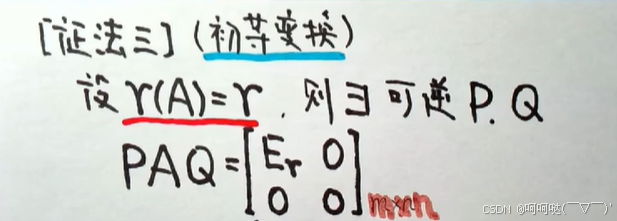 [证法三] (初等变换)
设 r(A)=r. 则∃可逆P.Q
PAQ=[Er 0
0 0]m×n
CSDN @呵呵哒(￣▽￣)"